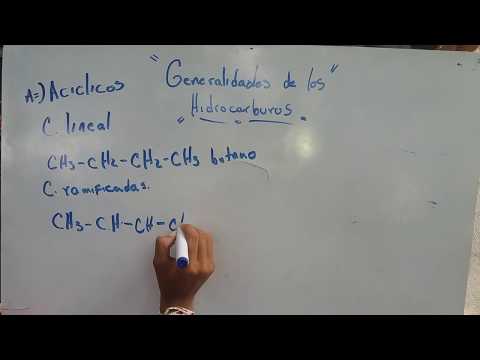 "Generalidades de los"
Hidrocarburos
A=) Aciclicos
C. lineal
CH3-CH2-CH2-CH3 butano
C. ramificadas.
CH3-CH-CH-C